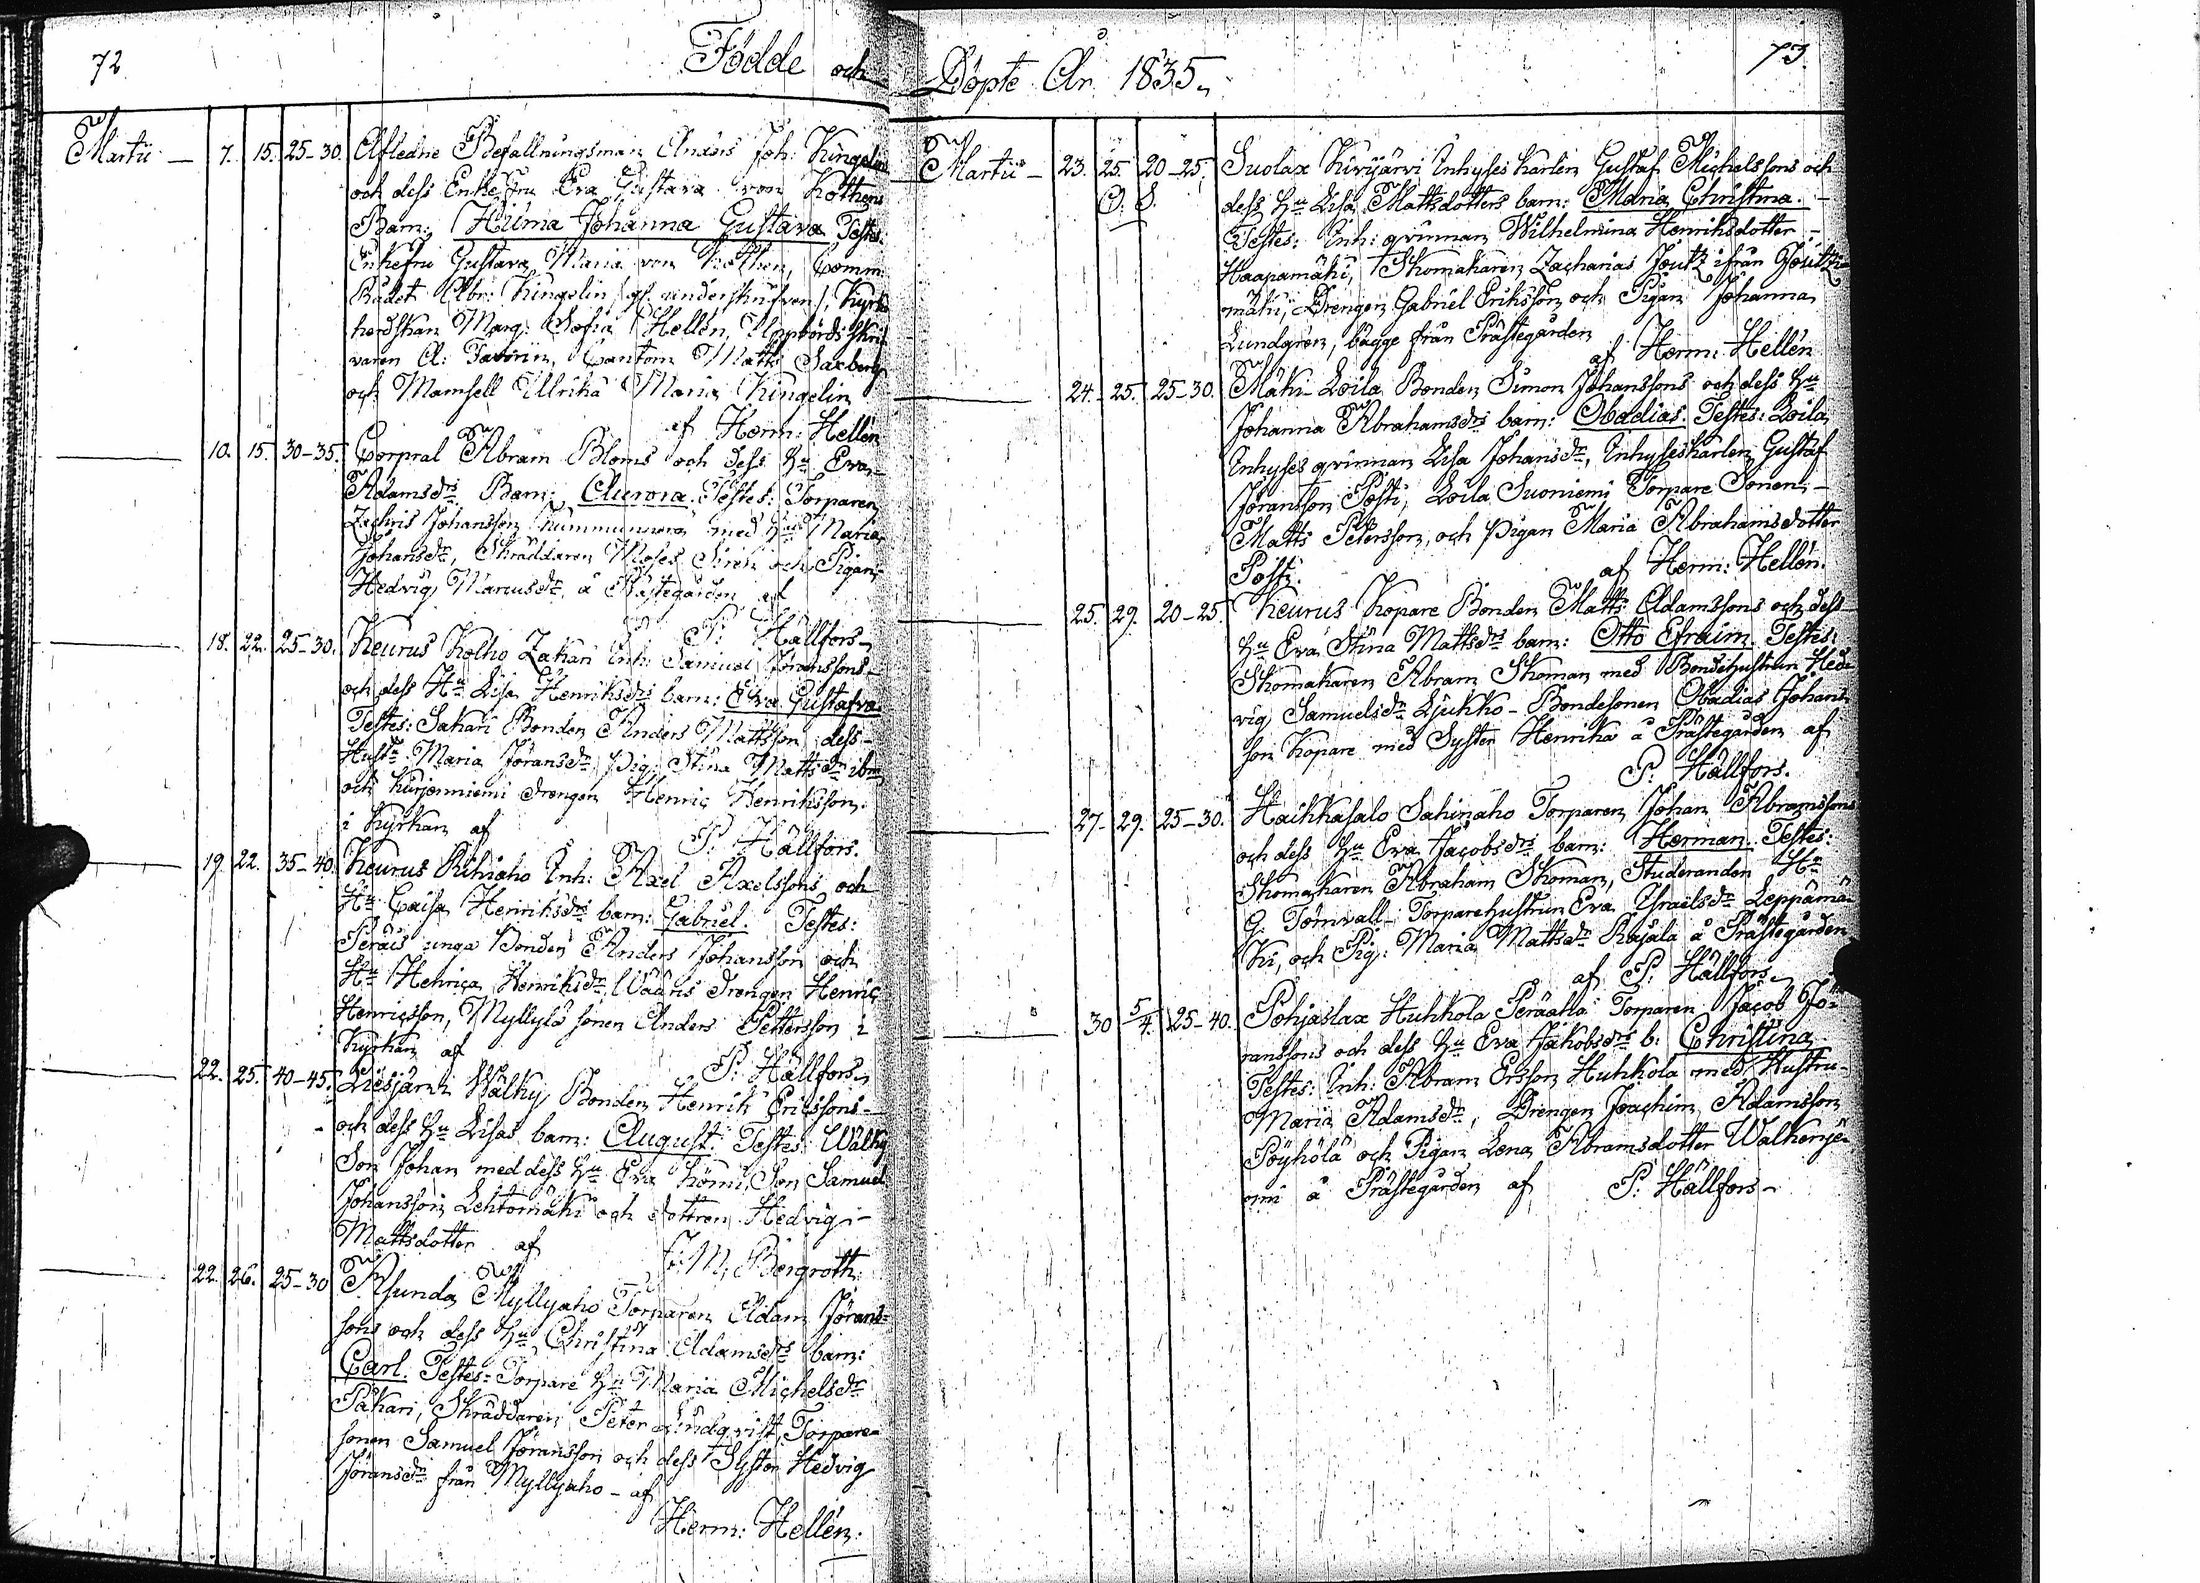 72
Födde och
Martii — 7. 15. 25–30. Afledne Befallningsman Anders Joh: Kingelin
och dess Enkefru Eva Gustava von Kothens
Barn: Hilma Johanna Gustava Testes:
Enkefru Gustava Maria von Kothen, Comm:
Rådet Abr: Kingelin, Kyrko
herdskan Marg: Sofia Hellén, Uppbördsskri
varen A: Favorin, Cantorn Matts Saxberg
och Mamsell Ullrika Maria Kingelin
af Herm: Hellén
10. 15. 30–35. Corpral Abram Bloms och dess Hu Eva
Adamsdrs Barn: Aurora. Testes: Torparen
Zachris Johansson med Hu Maria
Johansdr, Skräddaren Moses Siren och Pigan
Hedvig Mariusdr, å Prästegården af
P: Hällfors
18. 22. 25–30. Keurus Kolho Zakari Inh: Samuel Joranssons
och dess Hu Lisa Henriksdrs barn: Eva Gustafva
Testes: Sakari Bonden Anders Mattsson, dess
Hustr Maria Joransdr, Pig: Stina Mattsdr ibm
och Kurjenniemi drengen Henric Henriksson
i Kyrkan af
P: Hällfors.
19. 22. 35–40. Keurus Riihiaho Inh: Axel Axelssons och
Hu Caisa Henriksdrs barn: Gabriel. Testes:
Peräis unga Bonden Anders Johansson och
Hu Henrica Henriksdr, drengen Henric
Henricsson, Myllylä sonen Anders Pettersson i
Kyrkan af
P: Hällfors
22. 25. 40–45. Liesjärvi Wälky Bonden Henrik Ericssons
och dess Hu Lisas barn: August. Testes: Wälky
Son Johan med dess Hu Eva Son Samuel
Johansson Lehtomäki och dottren Hedvig
Mattsdotter af
F: M: Bergroth
22. 26. 25–30 Asunda Myllyaho Torparen Adam Jörans=
sons och dess Hu Christina Adamsdrs barn:
Carl. Testes: Torpare Hu Maria Michelsdr
Pakari, Skräddaren Peter Lindqvist, Torpare=
sonen Samuel Joransson och dess Syster Hedvig
Joransdr från Myllyaho – af
Herm: Hellén.
73.
Döpte År 1835.
Martii – 23. 25. 20–25. Suolax Kivijärvi Inhyses karlen Gustaf Michelssons och
O. S. dess Hu Lisa Mattsdotters barn: Maria Christina.
Testes: Inh: qvinnan Wilhelmina Henriksdotter
Haapamäki, Skomakaren Zacharias Joutz ifrån Joutzi=
mäki, Drengen Gabriel Eriksson och Pigan Johanna
Lundgren, bägge från Prästegården
af Herm: Hellén
24. 25. 25–30. Mäki Loila Bonden Simon Johanssons och dess Hu
Johanna Abrahamsdrs barn: Obadias. Testes: Loila
Inhyses qvinnan Lisa Johansdr, Inhyseskarlen Gustaf
Joransson Posti, Loila Suoniemi Torpare Sonen
Matts Petersson, och Pigan Maria Abrahamsdotter
Posti. af Herm: Hellén.
25. 29. 20–25. Keurus Kopare Bonden Matts Adamssons och dess
Hu Eva Stina Mattsdrs barn: Otto Efraim. Testes:
Skomakaren Abram Skoman med Bondehustrun Hed=
vig Samuelsdr Ljukko – Bondesonen Obadias Johans
son Kopare med Syster Henrika å Prästegården af
P: Hällfors.
27. 29. 25–30. Haikkasalo Sahinaho Torparen Johan Abramssons
och dess Hu Eva Jacobsdrs barn: Herman. Testes:
Skomakaren Abraham Skoman, Studeranden
G. Törnvall Torparehustrun Eva Israelsdr Leppämä=
Ki, och Pig: Maria Mattsdr Rajala å Prästegården
af P: Hällfors
30 5/4. 25–40. Pohjaslax Huhkola Peräaho Torparen Jacob Jö=
ranssons och dess Hu Eva Jakobsdrs b: Christina
Testes: Inh: Abram Ersson Huhkola med Hustru
Maria Adamsdr, Drengen Joachim Adamsson
Pöyhölä och Pigan Lena Abramsdotter Walkenje=
mi å Prästegården af P: Hällfors –